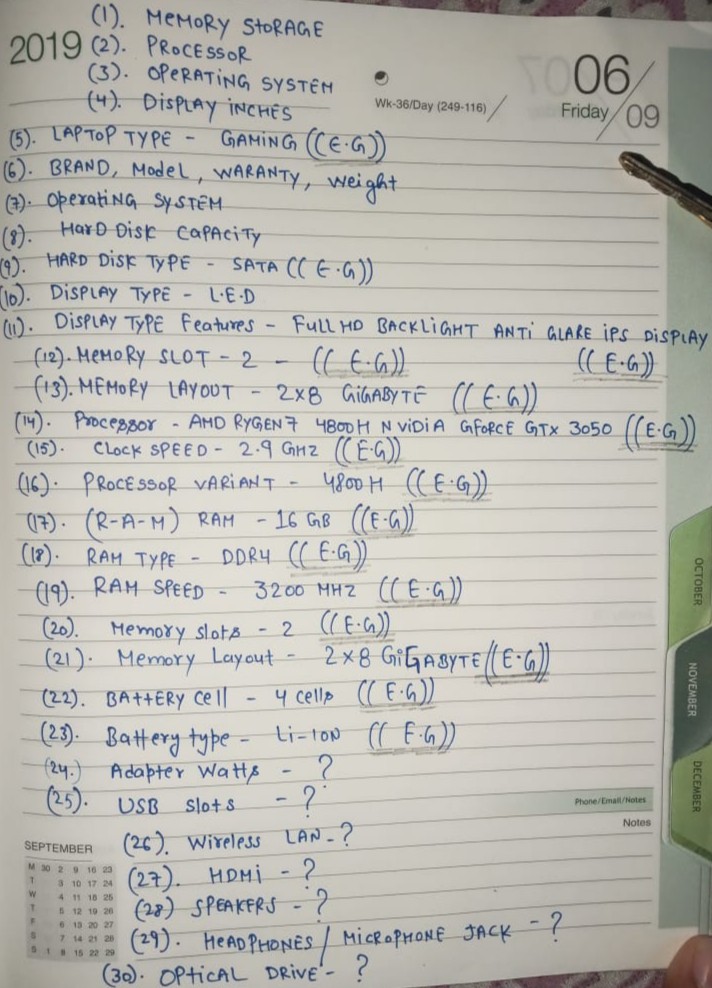 (1). MEMORY STORAGE
2019 (2). PROCESSOR
(3). OPERATING SYSTEM
(4). DISPLAY INCHES
06
Wk-36/Day (249-116)
Friday
09
(5). LAPTOP TYPE - GAMING ((E.G))
(6). BRAND, Model, WARANTY, weight
(7). Operating SYSTEM
(8). HARD DISK CAPACITY
(9). HARD DISK TYPE - SATA ((E.G))
(10). DISPLAY TYPE - L.E.D
(11). DISPLAY TYPE Features - FULL HD BACKLIGHT ANTI GLARE iPS DISPLAY
((E.G))
(12). MEMORY SLOT - 2 - ((E.G))
(13). MEMORY LAYOUT - 2x8 GIGABYTE ((E.G))
(14). Processor - AMD RYGEN 7 4800H NViDiA GFORCE GTX 3050 ((E.G))
(15). CLOCK SPEED - 2.9 GHZ ((E.G))
(16). PROCESSOR VARIANT - 4800 H ((E.G))
(17). (R-A-M) RAM - 16 GB ((E.G))
(18). RAM TYPE - DDR4 ((E.G))
(19). RAM SPEED - 3200 MHZ ((E.G))
(20). Memory slots - 2 ((E.G))
(21). Memory Layout - 2x8 GiGABYTE ((E.G))
(22). BAttERY Cell - 4 cells ((E.G))
(23). Battery type - Li-ION ((E.G))
(24.) Adapter Watts - ?
(25). USB slots - ?
Phone/Email/Notes
Notes
(26). Wireless LAN - ?
(27). HDMI - ?
(28) SPEAKERS - ?
(29). HEADPHONES / MICROPHONE JACK - ?
(30). OPTICAL DRIVE - ?
SEPTEMBER
M 30 2 9 16 23
T 3 10 17 24
W 4 11 18 25
T 5 12 19 26
F 6 13 20 27
S 7 14 21 28
S 1 8 15 22 29
OCTOBER
NOVEMBER
DECEMBER